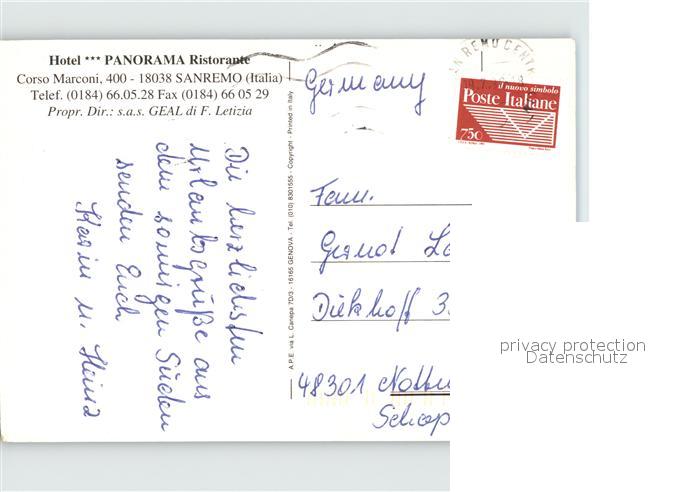 Hotel *** PANORAMA Ristorante
Corso Marconi, 400 - 18038 SANREMO (Italia)
Telef. (0184) 66.05.28 Fax (0184) 66 05 29
Propr. Dir.: s.a.s. GEAL di F. Letizia
Die herzlichsten
Urlaubsgrüße aus
dem sonnigen Süden
senden Euch
Karin u. Heinz
A.P.E. via L. Canepa 7D/3 - 16165 GENOVA - Tel. (010) 8301555 - Copyright - Printed in Italy
Germany
SANREMO CENTR
il nuovo simbolo
Poste Italiane
750
Fam.
Gernot
Diekhoff 3
48301 Nottu
Schap
privacy protection
Datenschutz